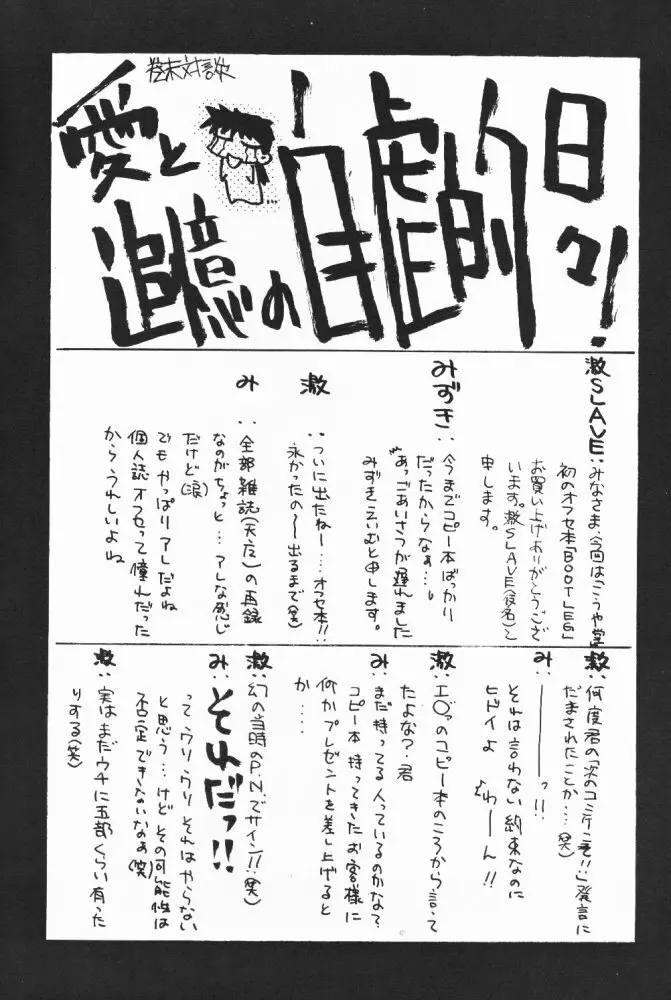 巻末対談
愛と
追憶の
自虐的
日々!
激SLAVE:みなさま、今回はこうや堂
初のオフセ本「BOOT LEG」
お買い上げありがとうござ
います。激SLAVE(仮名)と
申します。
みずき:今までコピー本ばっかり
だったからなぁ…。
あっごあいさつが遅れました
みずきえいむと申します。
激:ついに出たねー…オフセ本!!
永かったの〜出るまで(笑)
み:全部雑誌の再録
なのがちょっと…アレな感じ
だけど(涙)
でもやっぱりアレだよね
個人誌オフセって憧れだった
からうれしいよね
激:何度君の「次のコミケこそ!!」発言に
だまされたことか…(笑)
み:――――っ!!
それは言わない約束なのに
ヒドイよ わーん!!
激:エ○っのコピー本のころから言って
たよな?君
み:まだ持ってる人っているのかな?
コピー本持ってきたお客様に
何かプレゼントを差し上げると
か…
激:幻の当時のP.N.でサイン!!(笑)
み:それだっ!!
ってウソウソそれはやらない
と思う…けどその可能性は
否定できないなぁ(笑)
激:実はまだウチに五部くらい有った
りする(笑)